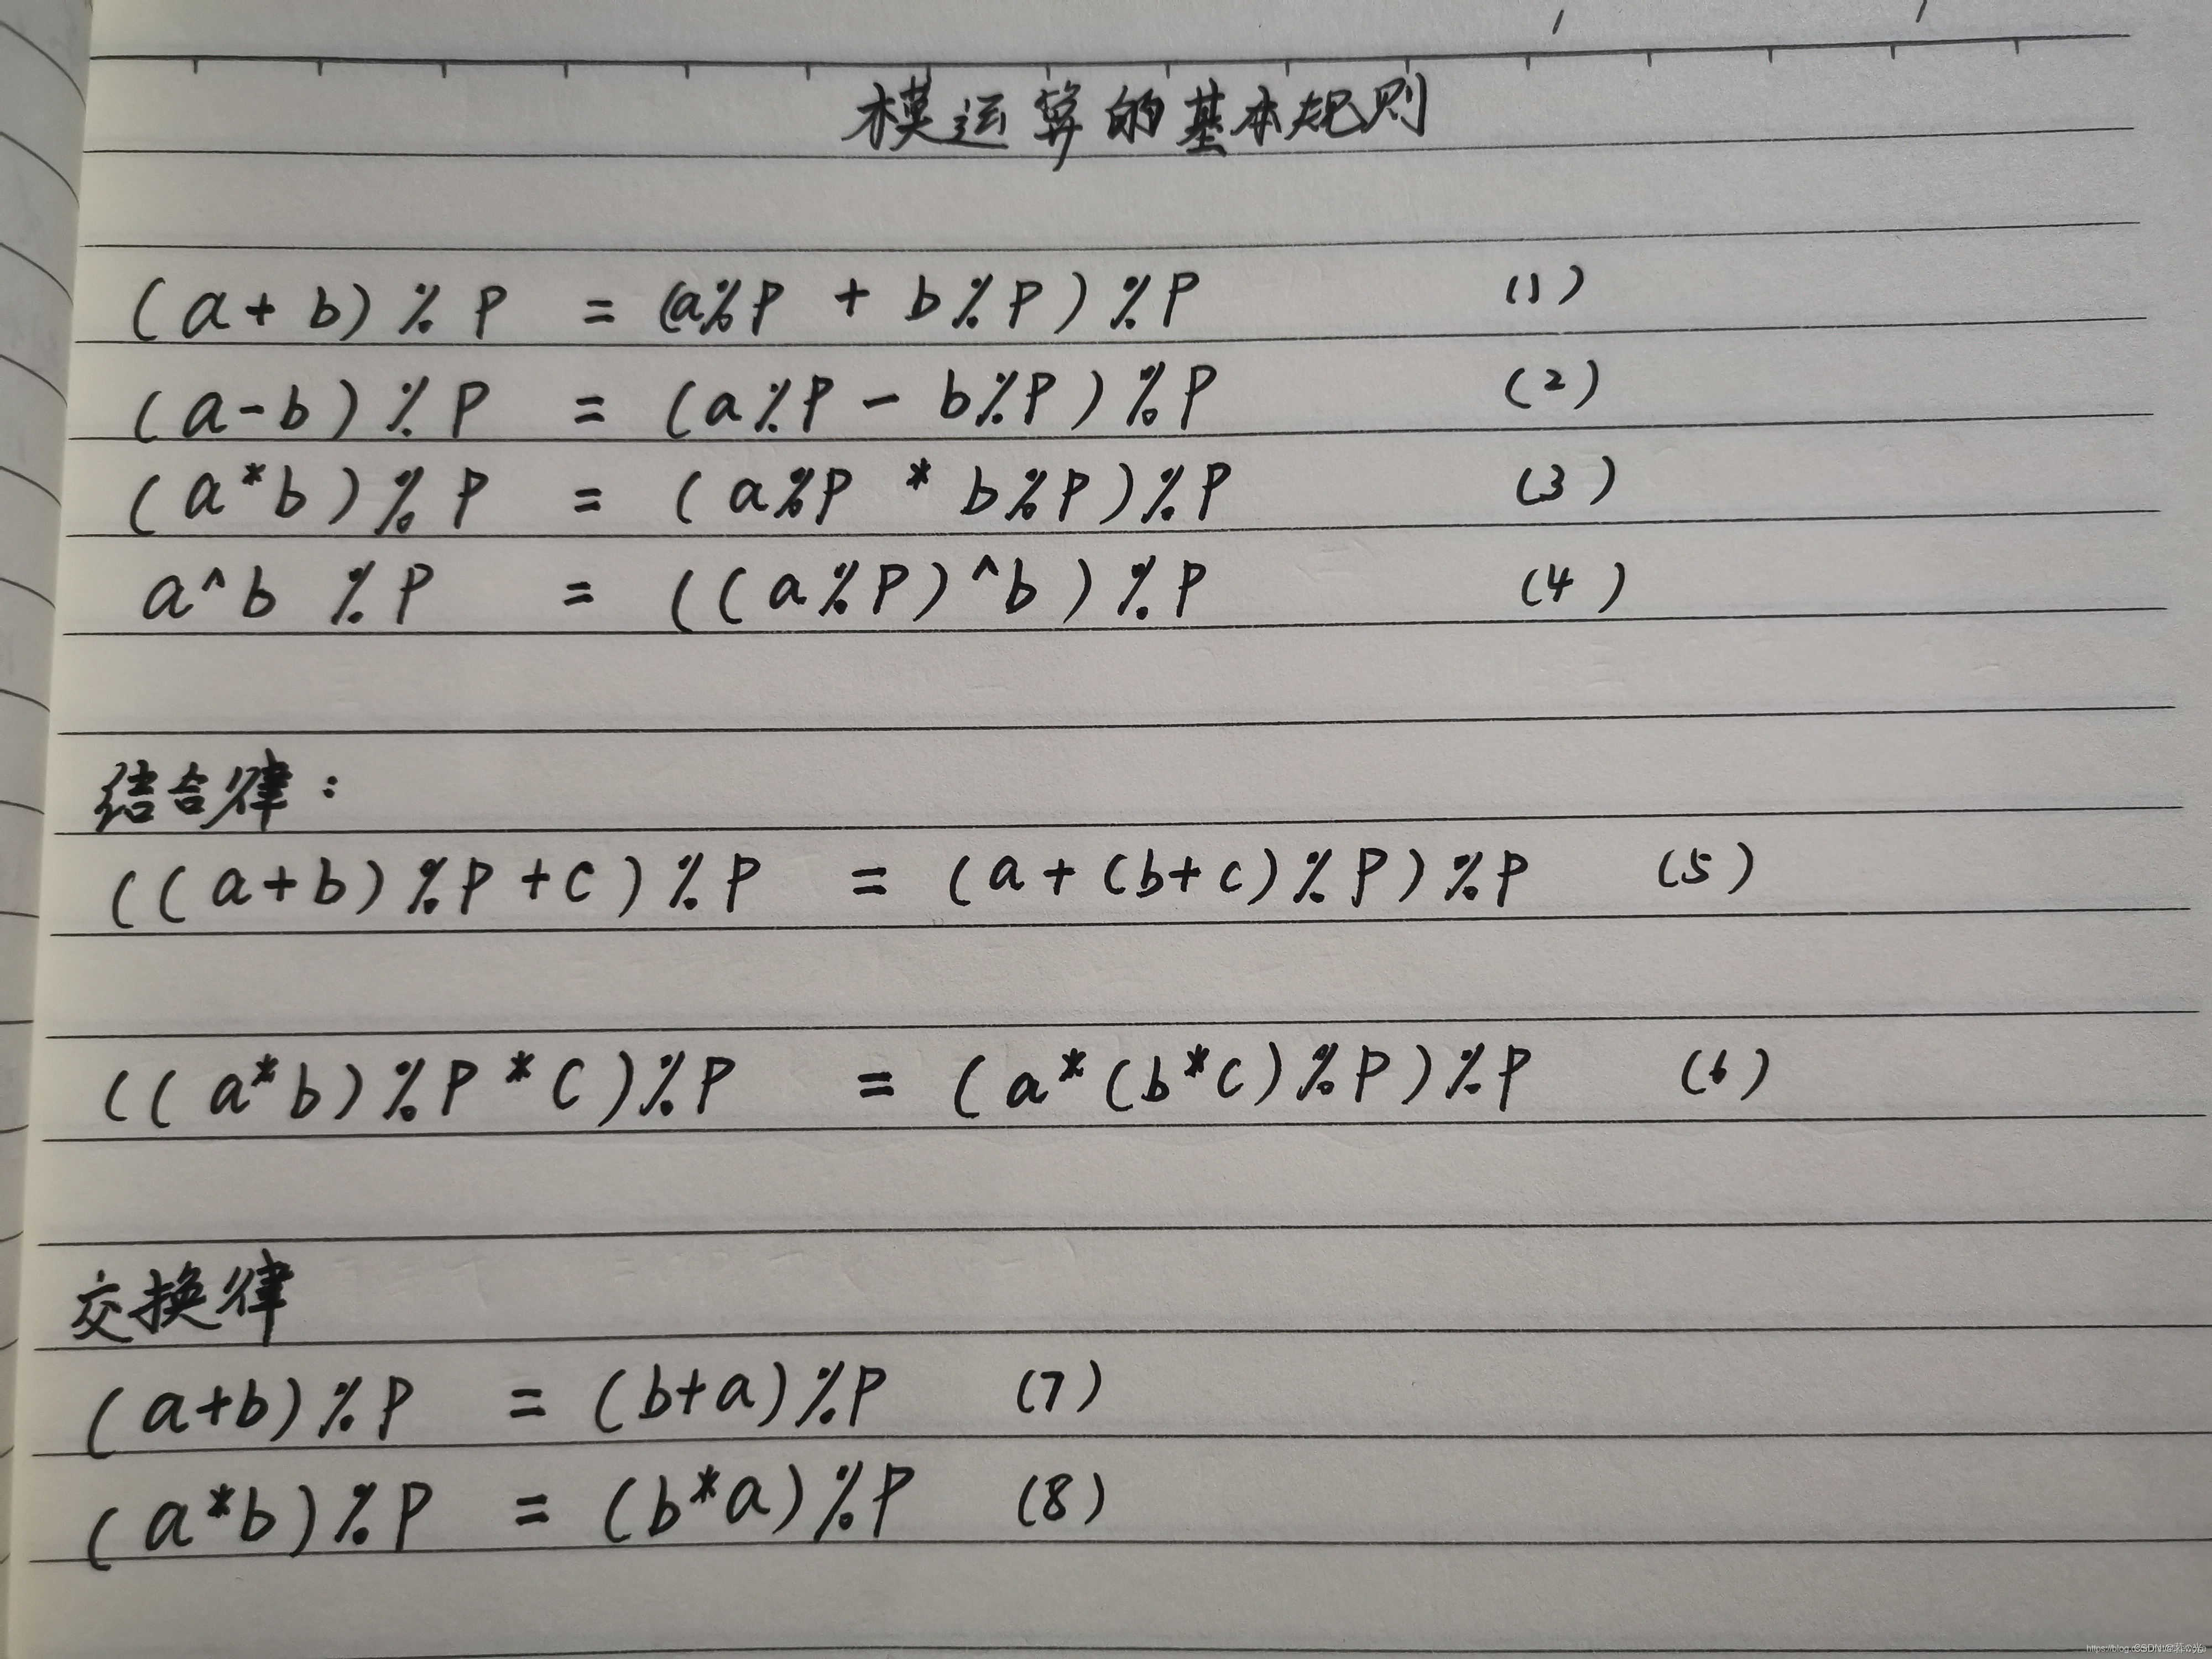 模运算的基本规则
(a+b)%P = (a%P + b%P)%P (1)
(a-b)%P = (a%P - b%P)%P (2)
(a*b)%P = (a%P * b%P)%P (3)
a^b %P = ((a%P)^b)%P (4)
结合律:
((a+b)%P+c)%P = (a+(b+c)%P)%P (5)
((a*b)%P*c)%P = (a*(b*c)%P)%P (6)
交换律
(a+b)%P = (b+a)%P (7)
(a*b)%P = (b*a)%P (8)